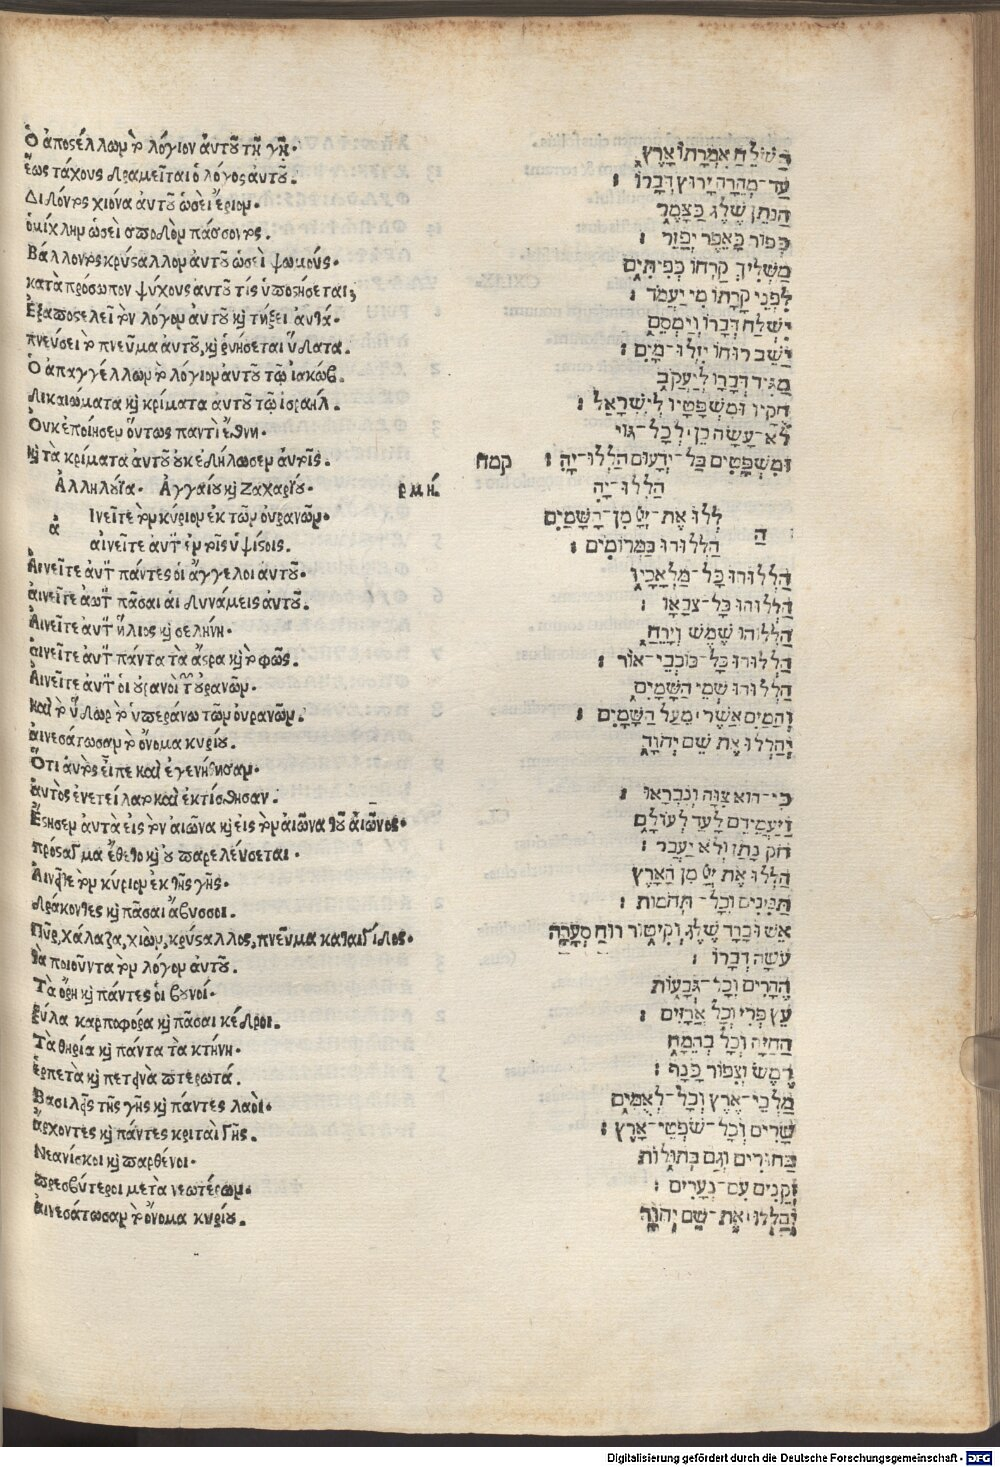 Ὁ ἀποστέλλων τὸ λόγιον ἀυτοῦ τῇ γῇ.
ἕως τάχους δραμεῖται ὁ λόγος ἀυτοῦ.
Διδόντος χιόνα ἀυτοῦ ὡσεὶ ἔριον.
ὁμίχλην ὡσεὶ σποδὸν πάσσοντος.
Βάλλοντος κρύσαλλον ἀυτοῦ ὡσεὶ ψωμούς.
κατὰ πρόσωπον ψύχους ἀυτοῦ τίς ὑποστήσεται;
Ἐξαποστελεῖ τὸν λόγον ἀυτοῦ κὴ τήξει ἀυτά.
πνέυσει τὸ πνεῦμα ἀυτοῦ, κὴ ῥυήσεται ὕδατα.
Ὁ ἀπαγγέλλων τὸ λόγιον ἀυτοῦ τῷ ἰακώβ.
δικαιώματα κὴ κρίματα ἀυτοῦ τῷ ἰσραήλ.
Ὀυκ ἐποίησεν ὅυτως παντὶ ἔθνη.
κὴ τὰ κρίματα ἀυτοῦ ὀυκ ἐδήλωσεν ἀυτοῖς.
Ἀλληλούϊα. Ἀγγαίου κὴ ζαχαρίου. ρμή.
Ἰνεῖτε τὸν κύριον ἐκ τῶν ὀυρανῶν.
ἀ
αἰνεῖτε ἀυτὸν ἐν τοῖς ὑψίστοις.
Ἀινεῖτε ἀυτὸν πάντες ὁι ἄγγελοι ἀυτοῦ.
ἀινεῖτε ἀυτὸν πᾶσαι ἁι δυνάμεις ἀυτοῦ.
Ἀινεῖτε ἀυτὸν ἥλιος κὴ σελήνη.
ἀινεῖτε ἀυτὸν πάντα τὰ ἄστρα κὴ τὸ φῶς.
Ἀινεῖτε ἀυτὸν ὁι ὀυρανοὶ τῶν ὀυρανῶν.
καὶ τὸ ὕδωρ τὸ ὑπεράνω τῶν ὀυρανῶν.
ἀινεσάτωσαν τὸ ὄνομα κυρίου.
Ὅτι ἀυτὸς εἶπε καὶ ἐγενήθησαν.
ἀυτὸς ἐνετείλατο καὶ ἐκτίσθησαν.
Ἔστησεν ἀυτὰ εἰς τὸν αἰῶνα κὴ εἰς τὸν αἰῶνα τοῦ ἀιῶνος.
πρόσταγμα ἔθετο κὴ ὀυ παρελέυσεται.
Ἀινεῖτε τὸν κύριον ἐκ τῆς γῆς.
δράκοντες κὴ πᾶσαι ἄβυσσοι.
Πῦρ, χάλαζα, χιὼν, κρύσαλλος, πνεῦμα καταιγίδος.
τὰ ποιοῦντα τὸν λόγον ἀυτοῦ.
Τὰ ὄρη κὴ πάντες ὁι βουνοί.
ξύλα καρποφόρα κὴ πᾶσαι κέδροι.
Τὰ θηρία κὴ πάντα τὰ κτήνη.
ἑρπετὰ κὴ πετεινὰ πτερωτά.
Βασιλεῖς τῆς γῆς κὴ πάντες λαοὶ.
ἄρχοντες κὴ πάντες κριταὶ γῆς.
Νεανίσκοι κὴ παρθένοι.
πρεσβύτεροι μετὰ νεωτέρων.
ἀινεσάτωσαν τὸ ὄνομα κυρίου.
הַשֹּׁלֵחַ אִמְרָתוֹ אָרֶץ
עַד־מְהֵרָה יָרוּץ דְּבָרוֹ :
הַנֹּתֵן שֶׁלֶג כַּצָּמֶר
כְּפוֹר כָּאֵפֶר יְפַזֵּר :
מַשְׁלִיךְ קַרְחוֹ כְפִיתִּים
לִפְנֵי קָרָתוֹ מִי יַעֲמֹד :
יִשְׁלַח דְּבָרוֹ וְיַמְסֵם
יַשֵּׁב רוּחוֹ יִזְּלוּ־מָיִם :
מַגִּיד דְּבָרָו לְיַעֲקֹב
חֻקָּיו וּמִשְׁפָּטָיו לְיִשְׂרָאֵל :
לֹא־עָשָׂה כֵן לְכָל־גּוֹי
וּמִשְׁפָּטִים בַּל־יְדָעוּם הַלְלוּ־יָהּ : קמח
הַלְלוּ־יָהּ
ה
לְלוּ אֶת־יְיָ מִן־הַשָּׁמַיִם
הַלְלוּהוּ בַּמְּרוֹמִים :
הַלְלוּהוּ כָל־מַלְאָכָיו
הַלְלוּהוּ כָּל־צְבָאָו :
הַלְלוּהוּ שֶׁמֶשׁ וְיָרֵחַ
הַלְלוּהוּ כָּל־כּוֹכְבֵי־אוֹר :
הַלְלוּהוּ שְׁמֵי הַשָּׁמָיִם
וְהַמַּיִם אֲשֶׁר מֵעַל הַשָּׁמָיִם :
יְהַלְלוּ אֶת שֵׁם יְהֹוָה
כִּי־הוּא צִוָּה וְנִבְרָאוּ :
וַיַּעֲמִידֵם לָעַד לְעוֹלָם
חָק נָתַן וְלֹא יַעֲבֹר :
הַלְלוּ אֶת יְיָ מִן הָאָרֶץ
תַּנִּינִים וְכָל־תְּהֹמוֹת :
אֵשׁ וּבָרָד שֶׁלֶג וְקִיטוֹר רוּחַ סְעָרָה
עֹשָׂה דְבָרוֹ :
הֶהָרִים וְכָל־גְּבָעוֹת
עֵץ פְּרִי וְכָל אֲרָזִים :
הַחַיָּה וְכָל בְּהֵמָה
רֶמֶשׂ וְצִפּוֹר כָּנָף :
מַלְכֵי־אֶרֶץ וְכָל־לְאֻמִּים
שָׂרִים וְכָל־שֹׁפְטֵי־אָרֶץ :
בַּחוּרִים וְגַם בְּתוּלוֹת
זְקֵנִים עִם־נְעָרִים :
יְהַלְלוּ אֶת־שֵׁם יְהֹוָה
Digitalisierung gefördert durch die Deutsche Forschungsgemeinschaft - DFG